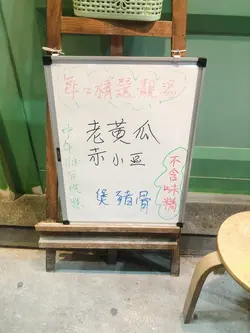 每日精選靚湯
老黃瓜
赤小豆
煲豬骨
不含味精